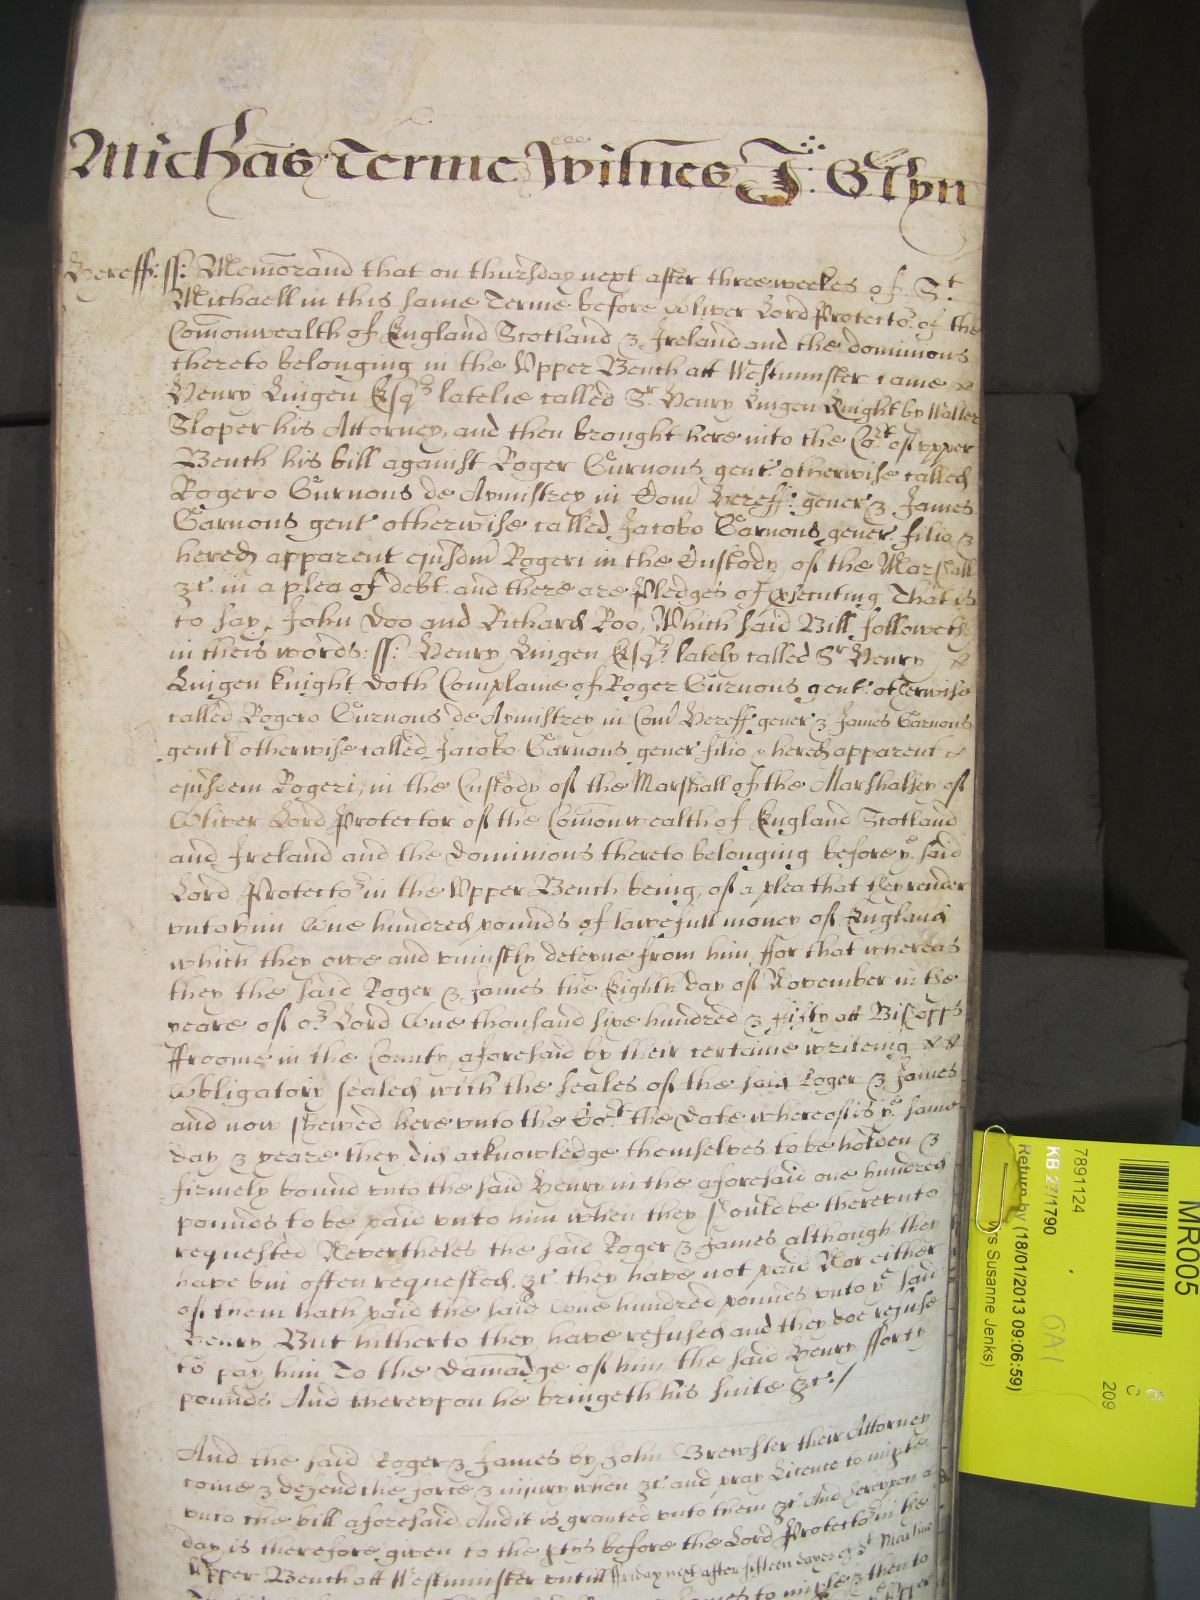 Michas Terme Witnes J: Glyn
Hereff: ss: Memorand that on thursday next after three weekes of St
Michaell in this same Terme before Oliver Lord Protector of the
Comonwealth of England Scotland & Ireland and the dominions
thereto belonging in the Upper Bench att Westminster came
Henry Lingen Esqr latelie called Sr Henry Lingen Knight by Walter
Sloper his Attorney, and then brought here into the Cort of upper
Bench his bill against Roger Gurnons gent otherwise called
Rogero Gurnons de Aymstrey in Com Hereff: gener & James
Garnons gent otherwise called Jacobo Garnons gener filio &
hered apparent ejusdm Rogeri in the Custody of the Marshall
&c. in a plea of debt and there are Pledges of prsecuting That is
to say, John Doo and Richard Roo, Which said Bill followeth
in theis words: ss: Henry Lingen Esqr lately called Sr Henry
Lingen knight doth Complaine of Roger Gurnons gent otherwise
called Rogero Gurnons de Aymstrey in Com Hereff gener & James Garnons
gent otherwise called Jacobo Garnons gener filio & hered apparent
ejusdem Rogeri, in the Custody of the Marshall of the Marshalsey of
Oliver Lord Protector of the Comonwealth of England Scotland
and Ireland and the dominions thereto belonging before ye said
Lord Protector in the Upper Bench being, of a plea that they render
unto him One hundred pounds of lawefull money of England
which they owe and uniustly deteyne from him ffor that whereas
they the said Roger & James the Eighth day of November in the
yeare of or Lord One thousand sixe hundred & fifty att Bishopps
ffroome in the County aforesaid by their certaine writeing
Obligatory sealed with the seales of the said Roger & James
and now shewed here unto the Cort the date whereof is ye same
day & yeare they did acknowledge themselves to be holden &
firmely bound unto the said Henry in the aforesaid one hundred
pounds to be paid unto him when they should be thereunto
requested Nevertheles the said Roger & James although they
have bin often requested &c. they have not paid Nor either
of them hath paid the said One hundred pounds unto ye said
Henry But hitherto they have refused and they doe refuse
to pay him To the damadge of him the said Henry fforty
pounds And thereupon he bringeth his suite &c./
And the said Roger & James by John Brewster their Attorney
come & defend the force & iniury when &c and pray Licence to imple
unto the bill aforesaid And it is granted unto them &c And hereupon a
day is therefore given to the ptys before the Lord Protector in the
Upper Bench att Westminster untill ffriday next after fifteen dayes of St Martine
to imple & then to
MR005
7891124
KB 27/1790
Return by (18/01/2013 09:06:59)
Susanne Jenks)
OA1
C
209